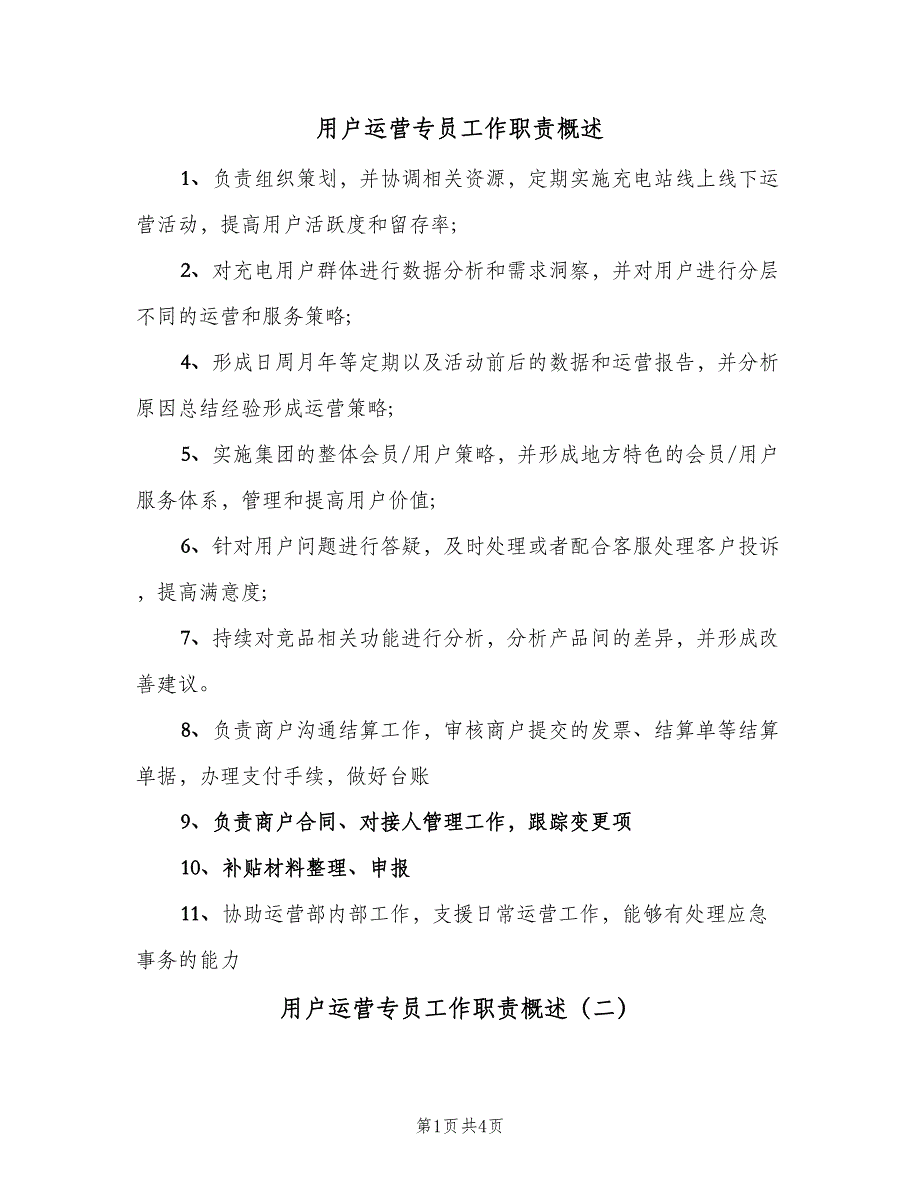 用户运营专员工作职责概述
1、负责组织策划，并协调相关资源，定期实施充电站线上线下运
营活动，提高用户活跃度和留存率;
2、对充电用户群体进行数据分析和需求洞察，并对用户进行分层
不同的运营和服务策略;
4、形成日周月年等定期以及活动前后的数据和运营报告，并分析
原因总结经验形成运营策略;
5、实施集团的整体会员/用户策略，并形成地方特色的会员/用户
服务体系，管理和提高用户价值;
6、针对用户问题进行答疑，及时处理或者配合客服处理客户投诉
，提高满意度;
7、持续对竞品相关功能进行分析，分析产品间的差异，并形成改
善建议。
8、负责商户沟通结算工作，审核商户提交的发票、结算单等结算
单据，办理支付手续，做好台账
9、负责商户合同、对接人管理工作，跟踪变更项
10、补贴材料整理、申报
11、协助运营部内部工作，支援日常运营工作，能够有处理应急
事务的能力
用户运营专员工作职责概述（二）
第1页共4页